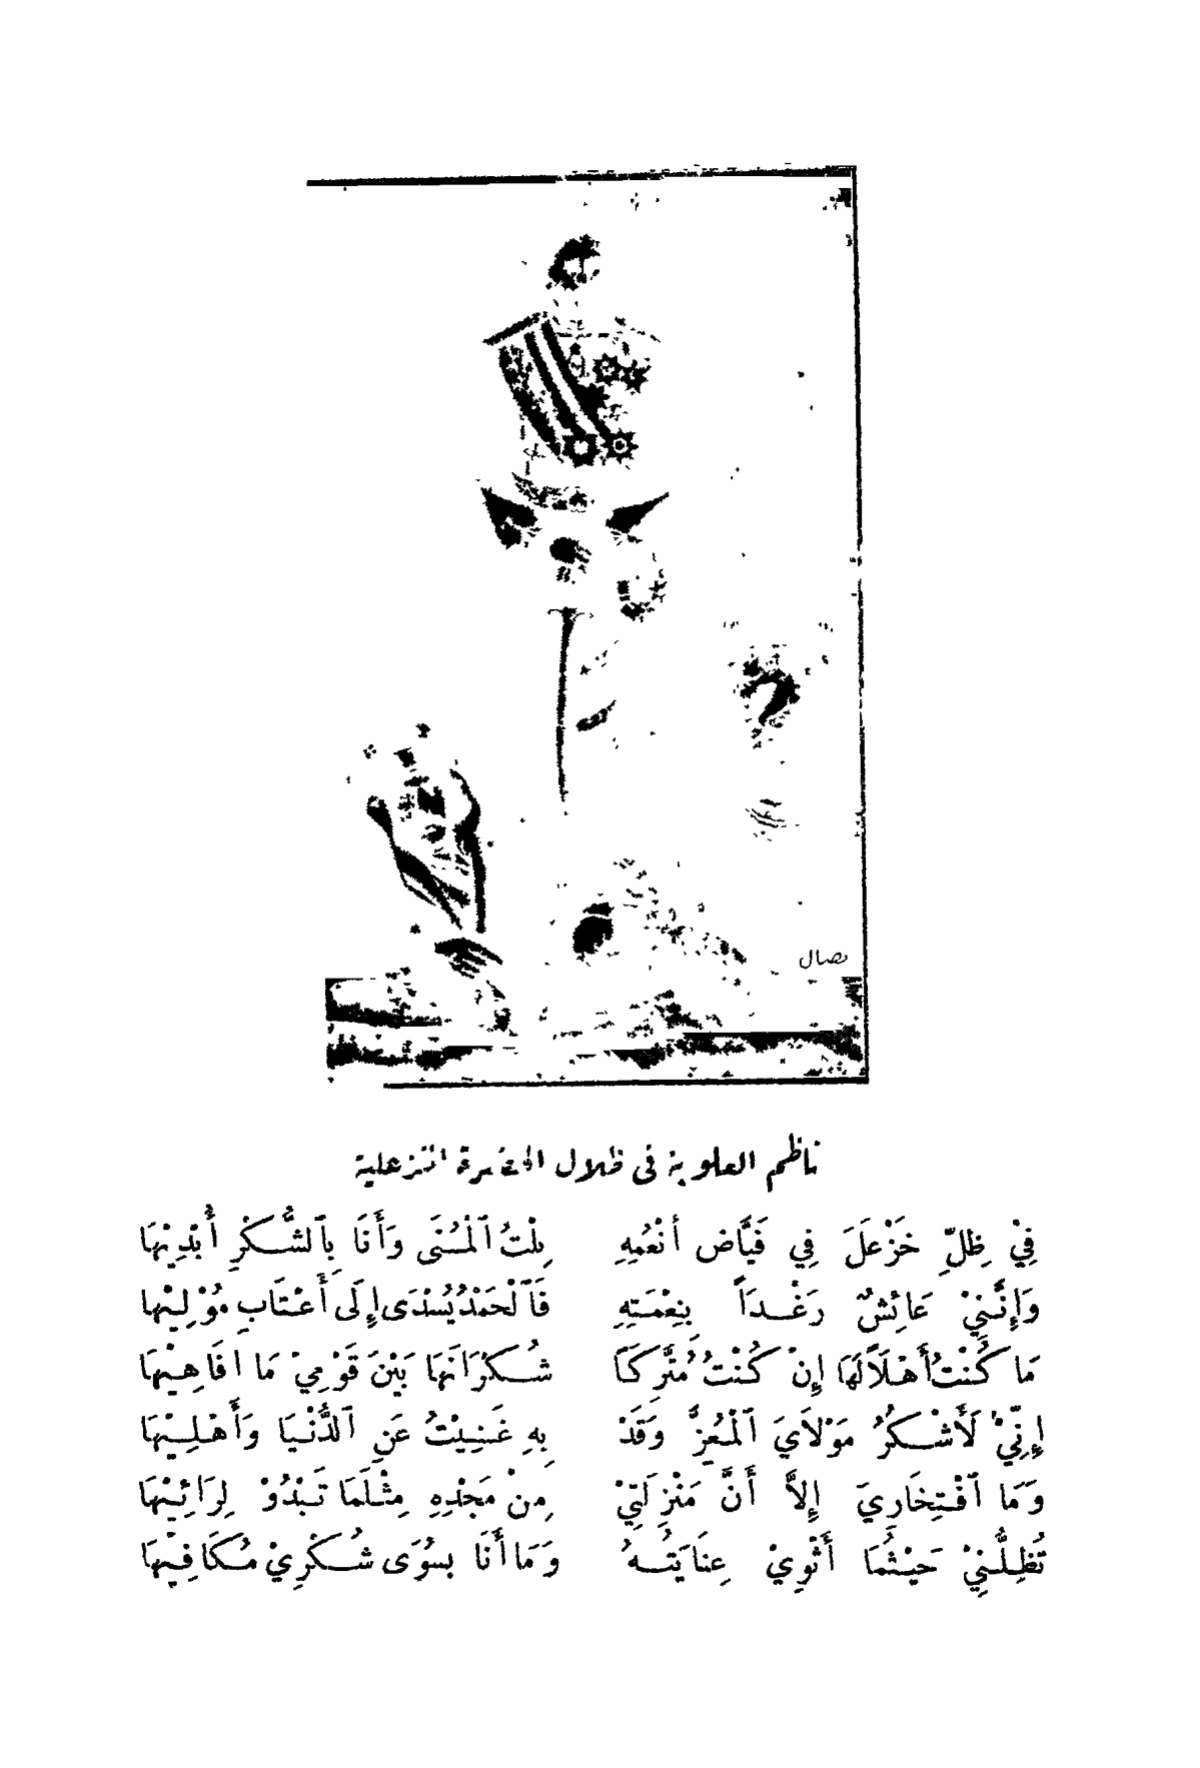 نصال
ناظم العلوية في ظلال الحضرة الخزعلية
فِيْ ظِلِّ خَزْعَلَ فِي فَيَّاضِ أَنْعُمِهِ نِلْتُ ٱلْمُنَى وَأَنَا بِٱلشُّكْرِ أُبْدِيْهَا
وَإِنَّنِيْ عَائِشٌ رَغْدَاً بِنِعْمَتِهِ فَٱلْحَمْدُ يُسْدَى إِلَى أَعْتَابِ مُوْلِيْهَا
مَا كُنْتُ أَهْلَاً لَهَا إِنْ كُنْتُ مُتَّرِكَاً شُكْرَانَهَا بَيْنَ قَوْمِيْ مَا ا فَاهِيْهَا
إِنِّيْ لَأَشْكُرُ مَوْلَايَ ٱلْمُعِزَّ وَقَدْ بِهِ غَنِيْتُ عَنِ ٱلدُّنْيَا وَأَهْلِيْهَا
وَمَا ٱفْتِخَارِيَ إِلاَّ أَنَّ مَنْزِلَتِيْ مِنْ مَجْدِهِ مِثْلَمَا تَبْدُوْ لِرَائِيْهَا
تُظِلُّنِيْ حَيْثُمَا أَثْوِيْ عِنَايَتُهُ وَمَا أَنَا بِسِوَى شُكْرِيْ مُكَافِيْهَا